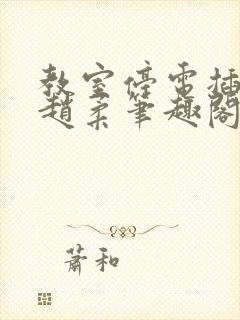 教室停電插
趙柔筆趣閣
蕭和